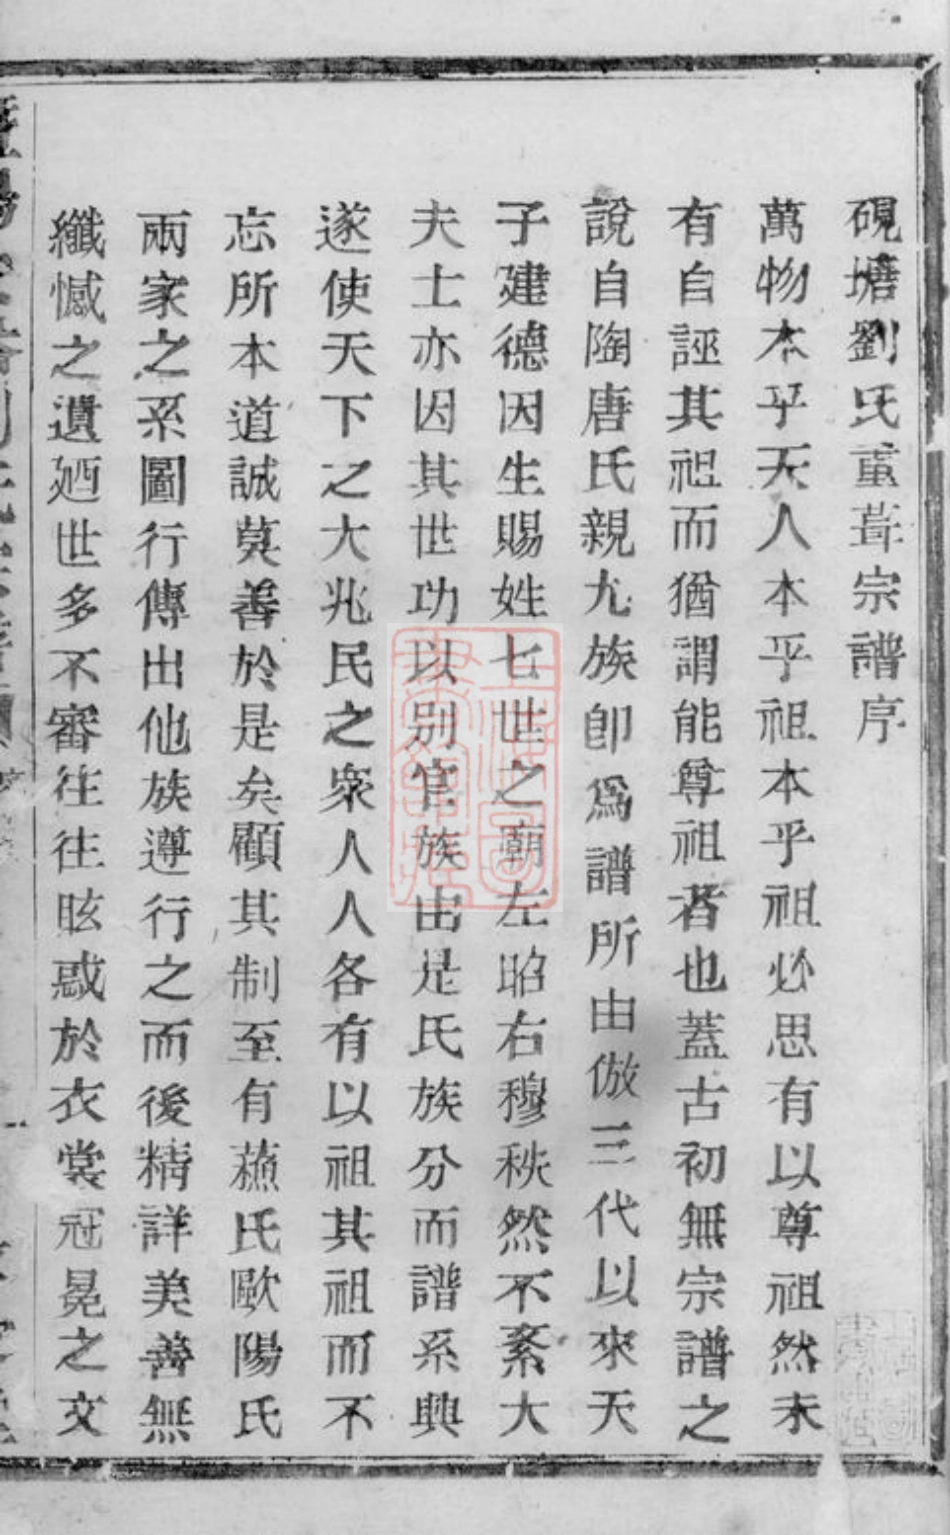 硯塘劉氏重葺宗譜序
萬物本乎天人本乎祖本乎祖必思有以尊祖然未
有自誣其祖而猶謂能尊祖者也蓋古初無宗譜之
說自陶唐氏親九族卽爲譜所由倣三代以來天
子建德因生賜姓七世之廟左昭右穆秩然不紊大
夫士亦因其世功以别官族由是氏族分而譜系興
遂使天下之大兆民之衆人人各有以祖其祖而不
忘所本道誠莫善於是矣顧其制至有蘇氏歐陽氏
兩家之系圖行傳出他族遵行之而後精詳美善無
纖憾之遺廼世多不審往往眩惑於衣裳冠冕之文